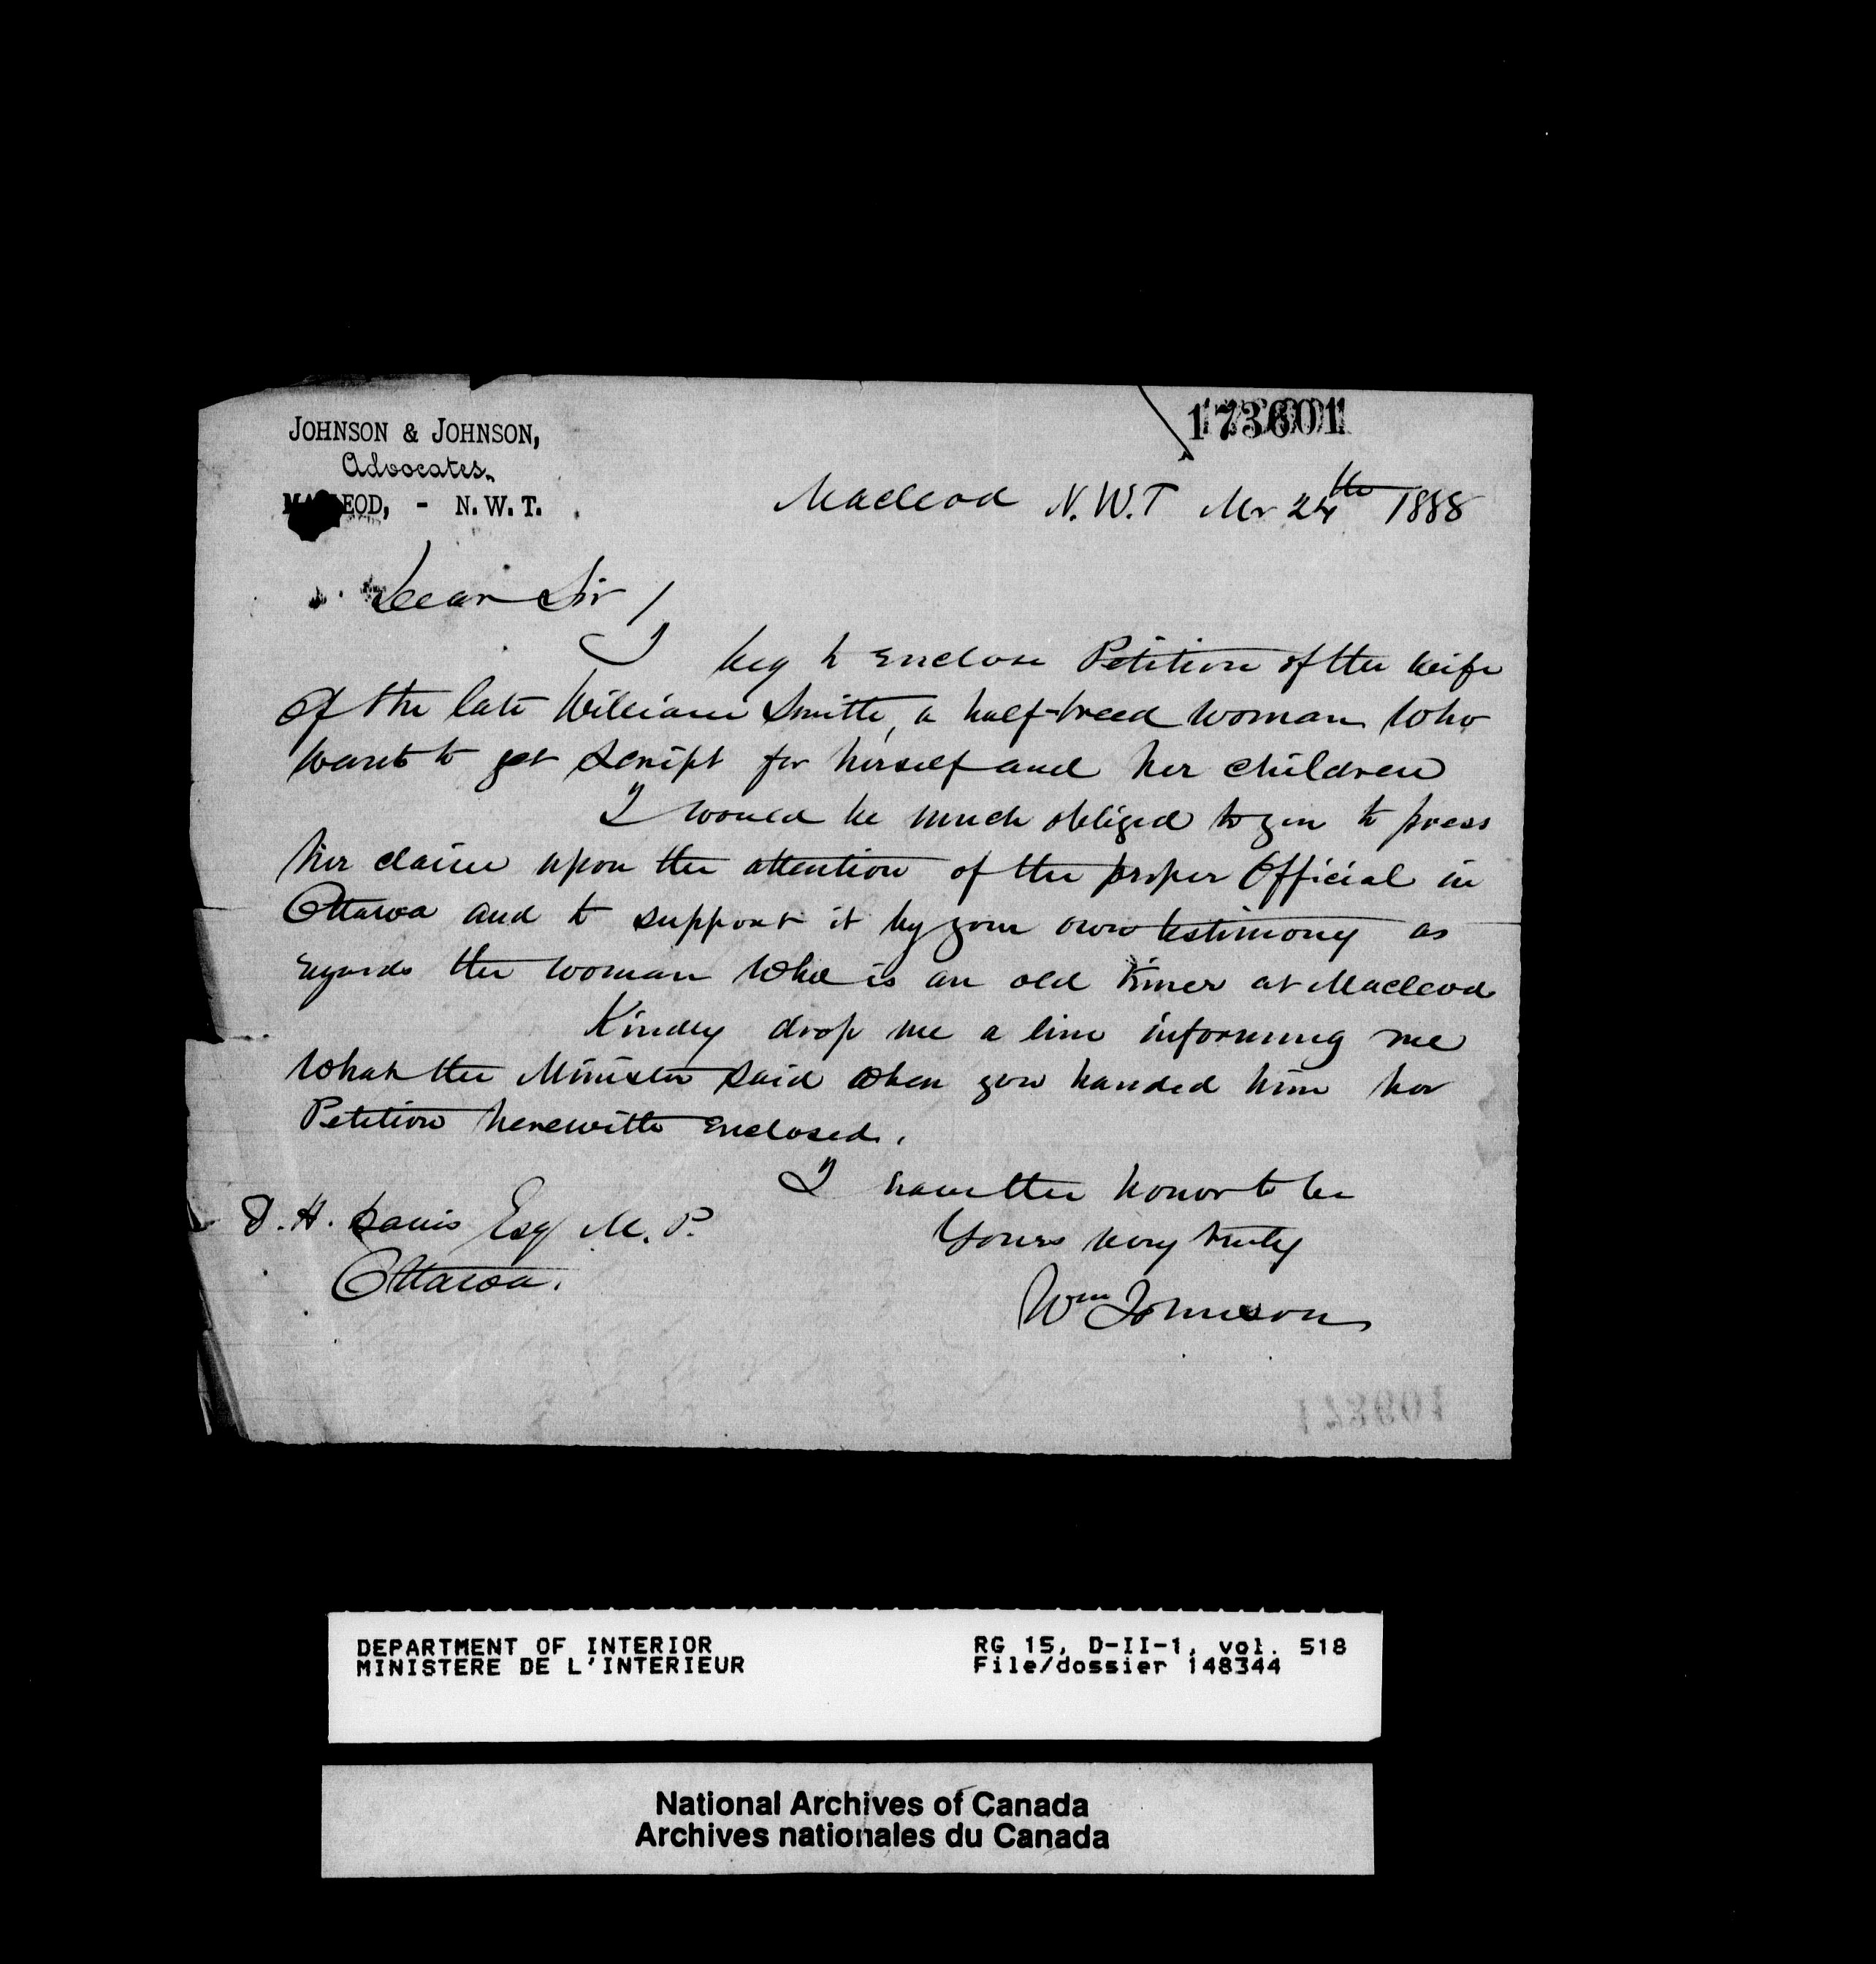 JOHNSON & JOHNSON,
Advocates.
MACLEOD, - N.W.T.
173601
Macleod N.W.T Mr 24th 1888
Dear Sir /
I beg to enclose Petition of the wife
of the late William Smith, a half-breed woman who
wants to get script for herself and her children
I would be much obliged to you to press
her claim upon the attention of the proper Official in
Ottawa and to support it by your own testimony as
regards the woman who is an old timer at Macleod
Kindly drop me a line informing me
what the Minister said when you handed him her
Petition herewith enclosed.
I have the honor to be
Yours very truly
Wm Johnson
D. H. Davis Esq M. P.
Ottawa.
DEPARTMENT OF INTERIOR
MINISTERE DE L'INTERIEUR
RG 15, D-II-1, vol. 518
File/dossier 148344
National Archives of Canada
Archives nationales du Canada